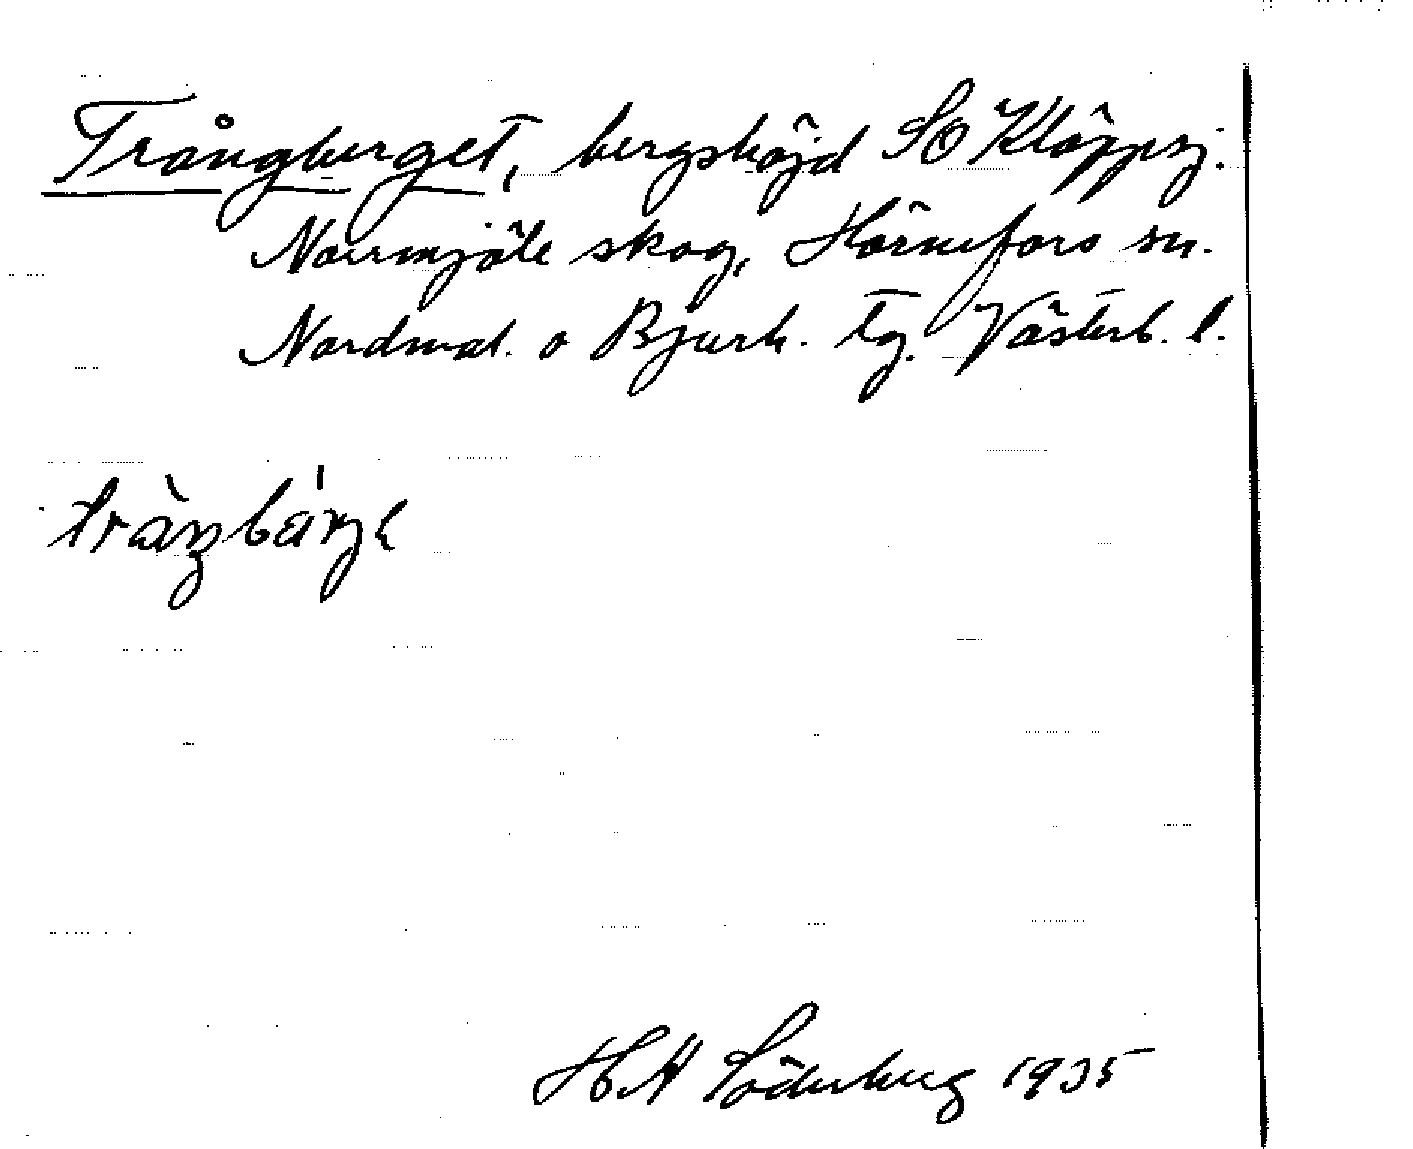 Trångberget, bergshöjd SO Klöppsj.
Norrmjöle skog, Hörnefors sn.
Nordmal. o Bjurh. tg. Västerb. l.
H N Söderberg 1935